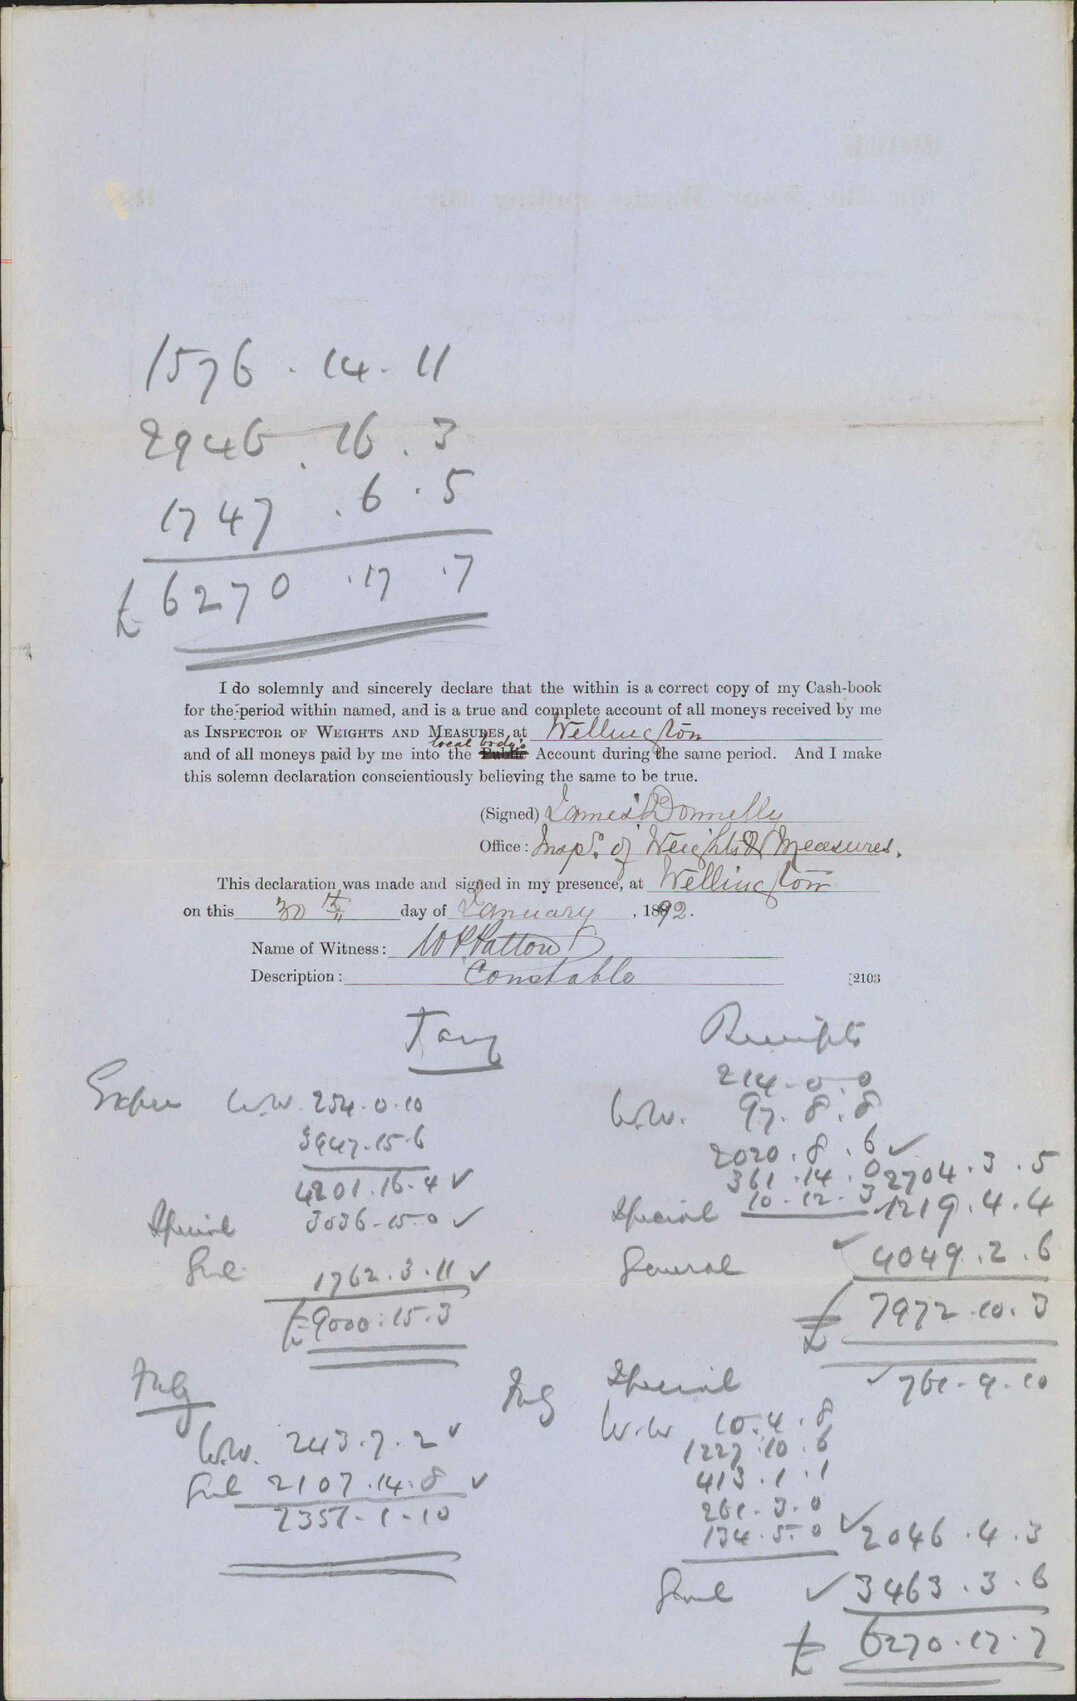 1576 . 14 . 11
2946 . 16 . 3
1747 . 6 . 5
£ 6270 . 17 . 7
I do solemnly and sincerely declare that the within is a correct copy of my Cash-book
for the period within named, and is a true and complete account of all moneys received by me
as Inspector of Weights and Measures at Wellington
local body's
and of all moneys paid by me into the Public Account during the same period. And I make
this solemn declaration conscientiously believing the same to be true.
(Signed) James Donnelly
Office: Insp. of Weights & Measures.
This declaration was made and signed in my presence, at Wellington
on this 30th day of January, 1892.
Name of Witness:
Description: Constable
[2103
Receipts
214 . 0 . 0
W.W. 254 . 0 . 10
W.W. 97 . 8 . 8
3947 . 15 . 6
2020 . 8 . 6 ✓
4201 . 16 . 4 ✓
361 . 14 . 0 2704 . 3 . 5
Special 3036 . 15 . 0 ✓
Special 10 . 12 . 3 1219 . 4 . 4
1762 . 3 . 11 ✓
General ✓ 4049 . 2 . 6
£ 9000 . 15 . 3
£ 7972 . 10 . 3
July
July Special ✓ 761 . 9 . 10
W.W. 10 . 4 . 8
W.W. 243 . 7 . 2 ✓
1227 . 10 . 6
2107 . 14 . 8 ✓
413 . 1 . 1
2351 . 1 . 10
261 . 3 . 0
134 . 5 . 0 ✓ 2046 . 4 . 3
✓ 3463 . 3 . 6
£ 6270 . 17 . 7